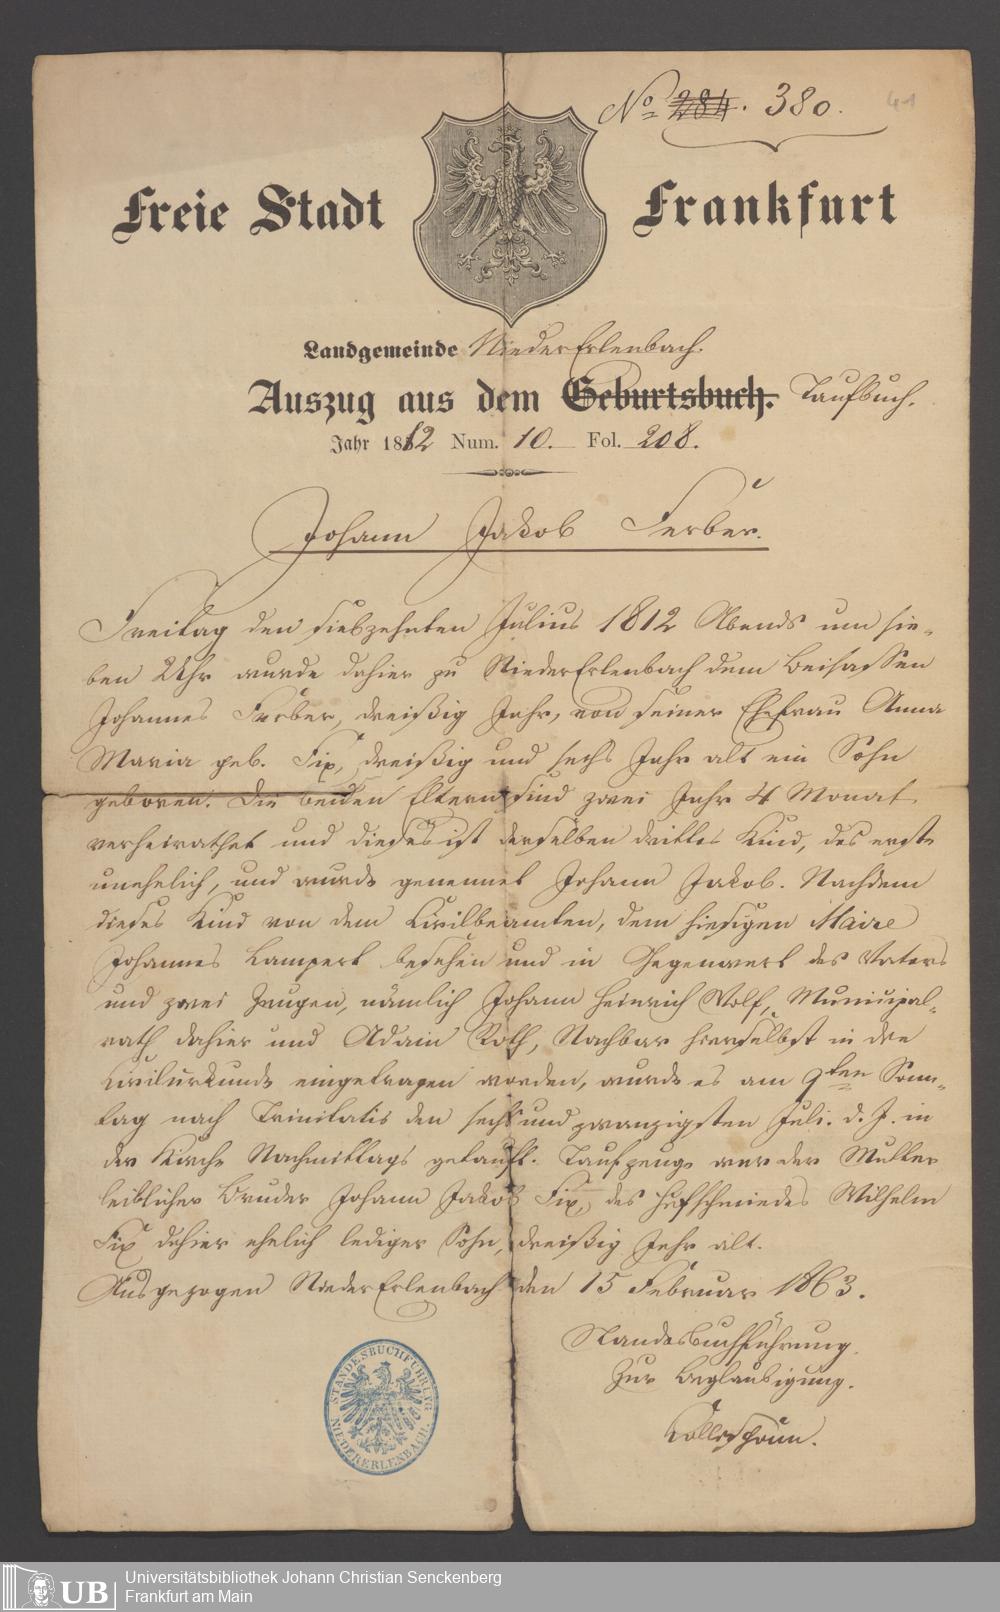 No 284. 380.
41
Freie Stadt Frankfurt
Landgemeinde NiederErlenbach.
Auszug aus dem Geburtsbuch. Taufbuch.
Jahr 1812 Num. 10. Fol. 208.
Johann Jakob Ferber.
Freitag den siebzehnten Julius 1812 Abends um sie-
ben Uhr wurde dahier zu NiederErlenbach dem Beisassen
Johannes Ferber, dreißig Jahr, von seiner Ehefrau Anna
Maria geb. Fix, dreißig und sechs Jahr alt ein Sohn
geboren. Die beiden Eltern sind zwei Jahr 4 Monat
verheirathet und dieses ist derselben drittes Kind, das erste
unehelich, und wurde genennet Johann Jakob. Nachdem
dieses Kind von dem Civilbeamten, dem hiesigen Maire
Johannes Lampert besehen und in Gegenwart des Vaters
und zwei Zeugen, nämlich Johann Heinrich Wolf, Municipal-
rath dahier und Adam Roth, Nachbar hierselbst in die
Civilurkunde eingetragen worden, wurde es am 9ten Sonn-
tag nach Trinitatis den sechs und zwanzigsten Juli d. J. in
der Kirche Nachmittags getauft. Taufzeuge war der Mutter
leiblicher Bruder Johann Jakob Fix, des Hufschmiedes Wilhelm
Fix dahier ehelich lediger Sohn, dreißig Jahr alt.
Ausgezogen NiederErlenbach den 15 Februar 1863.
Standesbuchführung.
Zur Beglaubigung.
STANDESBUCHFÜHRUNG
NIEDERERLENBACH.
UB
Universitätsbibliothek Johann Christian Senckenberg
Frankfurt am Main